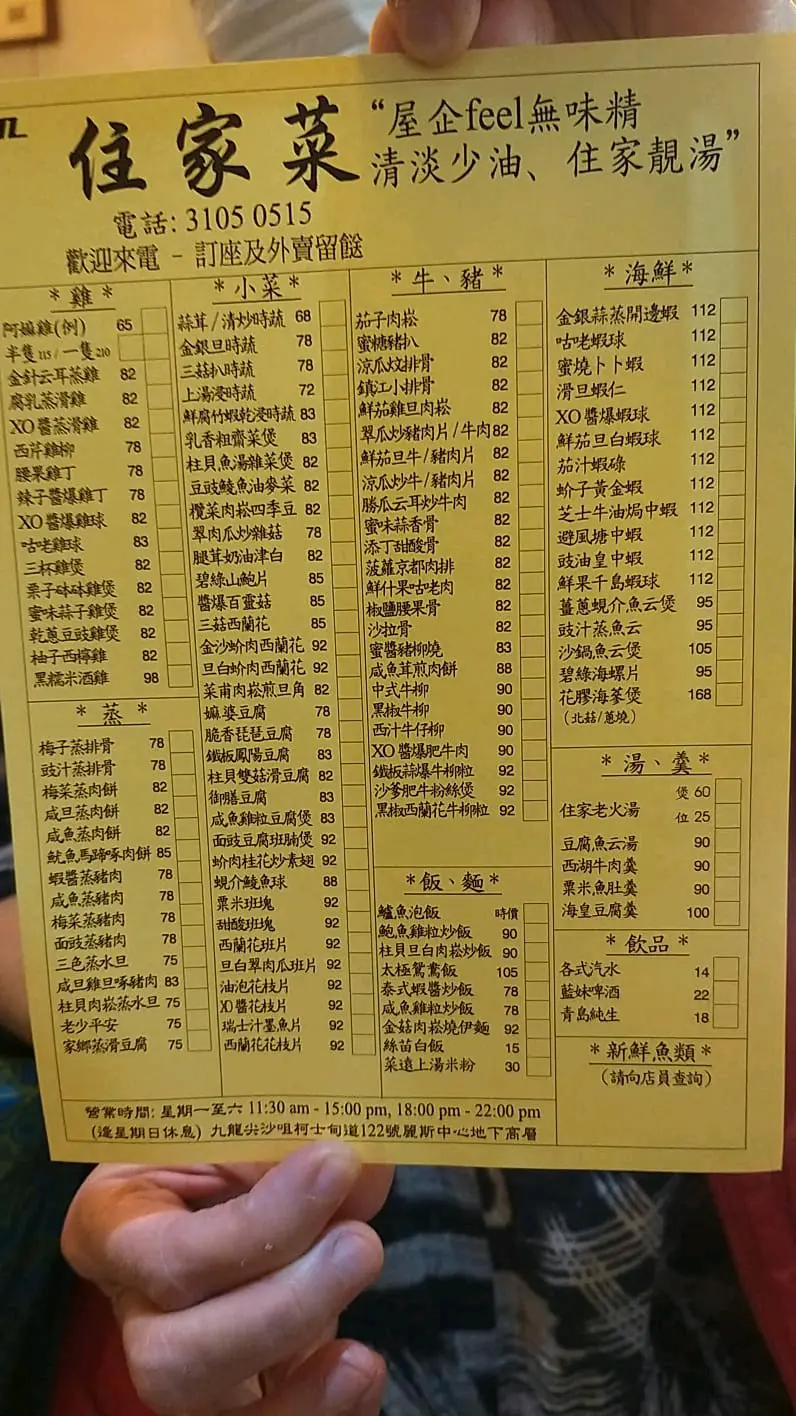 住家菜
“屋企feel無味精
清淡少油、住家靚湯”
電話: 3105 0515
歡迎來電 - 訂座及外賣留餸
* 雞 *
阿嫲雞(例) 65
半隻115/一隻210
金針云耳蒸雞 82
腐乳蒸滑雞 82
XO醬蒸滑雞 82
西芹雞柳 78
腰果雞丁 78
辣子醬爆雞丁 78
XO醬爆雞球 82
咕咾雞球 83
三杯雞煲 82
栗子砵砵雞煲 82
蜜味蒜子雞煲 82
乾蔥豆豉雞煲 82
柚子西檸雞 82
黑糯米酒雞 98
* 蒸 *
梅子蒸排骨 78
豉汁蒸排骨 78
梅菜蒸肉餅 82
咸旦蒸肉餅 82
咸魚蒸肉餅 82
魷魚馬蹄啄肉餅 85
蝦醬蒸豬肉 78
咸魚蒸豬肉 78
梅菜蒸豬肉 78
面豉蒸豬肉 78
三色蒸水旦 75
咸旦雞旦啄豬肉 83
柱貝肉崧蒸水旦 75
老少平安 75
家鄉蒸滑豆腐 75
* 小菜 *
蒜茸/清炒時蔬 68
金銀旦時蔬 78
三菇扒時蔬 78
上湯浸時蔬 72
鮮腐竹蝦乾浸時蔬 83
乳香粗齋菜煲 83
柱貝魚湯雜菜煲 82
豆豉鯪魚油麥菜 82
欖菜肉崧四季豆 82
翠肉瓜炒雜菇 78
腿茸奶油津白 82
碧綠山鮑片 85
醬爆百靈菇 85
三菇西蘭花 85
金沙蚧肉西蘭花 92
旦白蚧肉西蘭花 92
菜甫肉崧煎旦角 82
嫲婆豆腐 78
脆香琵琶豆腐 78
鐵板鳳陽豆腐 83
柱貝雙菇滑豆腐 82
御膳豆腐 83
咸魚雞粒豆腐煲 83
面豉豆腐班腩煲 92
蚧肉桂花炒素翅 92
蜆介鯪魚球 88
粟米班塊 92
甜酸班塊 92
西蘭花班片 92
旦白翠肉瓜班片 92
油泡花枝片 92
XO醬花枝片 92
瑞士汁墨魚片 92
西蘭花花枝片 92
* 牛、豬 *
茄子肉崧 78
蜜糖豬扒 82
涼瓜炆排骨 82
鎮江小排骨 82
鮮茄雞旦肉崧 82
翠瓜炒豬肉片/牛肉 82
鮮茄旦牛/豬肉片 82
涼瓜炒牛/豬肉片 82
勝瓜云耳炒牛肉 82
蜜味蒜香骨 82
添丁甜酸骨 82
菠蘿京都肉排 82
鮮什果咕咾肉 82
椒鹽腰果骨 82
沙拉骨 82
蜜醬豬柳燒 83
咸魚茸煎肉餅 88
中式牛柳 90
黑椒牛柳 90
西汁牛仔柳 90
XO醬爆肥牛肉 90
鐵板蒜爆牛柳粒 92
沙爹肥牛粉絲煲 92
黑椒西蘭花牛柳粒 92
* 飯、麵 *
鱸魚泡飯 時價
鮑魚雞粒炒飯 90
柱貝旦白肉崧炒飯 90
太極鴛鴦飯 105
泰式蝦醬炒飯 78
咸魚雞粒炒飯 78
金菇肉崧燒伊麵 92
絲苗白飯 15
菜遠上湯米粉 30
* 海鮮 *
金銀蒜蒸開邊蝦 112
咕咾蝦球 112
蜜燒卜卜蝦 112
滑旦蝦仁 112
XO醬爆蝦球 112
鮮茄旦白蝦球 112
茄汁蝦碌 112
蚧子黃金蝦 112
芝士牛油焗中蝦 112
避風塘中蝦 112
豉油皇中蝦 112
鮮果千島蝦球 112
薑蔥蜆介魚云煲 95
豉汁蒸魚云 95
沙鍋魚云煲 105
碧綠海螺片 95
花膠海蔘煲 168
(北菇/蔥燒)
* 湯、羹 *
煲 60
住家老火湯
位 25
豆腐魚云湯 90
西湖牛肉羹 90
粟米魚肚羹 90
海皇豆腐羹 100
* 飲品 *
各式汽水 14
藍妹啤酒 22
青島純生 18
* 新鮮魚類 *
(請向店員查詢)
營業時間: 星期一至六 11:30 am - 15:00 pm, 18:00 pm - 22:00 pm
(逢星期日休息) 九龍尖沙咀柯士甸道122號麗斯中心地下高層